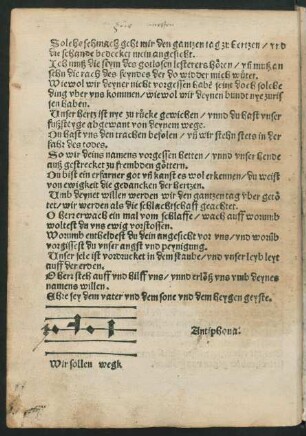 Solche schmach geht mir den gantzen tag zu hertzen / vnd
die schande bedecket mein angesicht.
Ich muß die stym des gotlosen lesterers hören / vñ muß an
sehn die rach des feyndes der do widder mich wütet.
Wiewol wir deyner nicht vorgessen habē seint doch solche
ding vber vns kommen / wiewol wir deynen bundt nye zuris
sen haben.
Vnser hertz ist nye zu rücke gewichen / vnnd du hast vnser
fußsteyge abgewant von deynem wege.
Du hast vns den trachen befolen / vñ wir stehn stets in der
fahr des todes.
So wir deins namens vorgessen hetten / vnnd vnser hende
außgestrecket zu frembden göttern.
Du bist ein erfarner got vñ kanst es wol erkennen / du weist
von ewigkeit die gedancken der hertzen.
Vmb deynet willen werden wir den gantzen tag vber getö
tet / wir werden als die schlachtschaff geachtet.
O Herr erwach ein mal vom schlaffe / wach auff worumb
woltest du vns ewig vorstossen.
Worumb entheldest du dein angesicht vor vns / vnd worüb
vorgissest du vnser angst vnd peynigung.
Vnser sele ist vordrucket in dem staube / vnd vnser leyb leyt
auff der erden.
O Herr steh auff vnd hilff vns / vnnd erlöß vns vmb deynes
namens willen.
Ehre sey dem vater vnd dem sone vnd dem heygen geyste.
Antiphona:
Wir sollen wegk